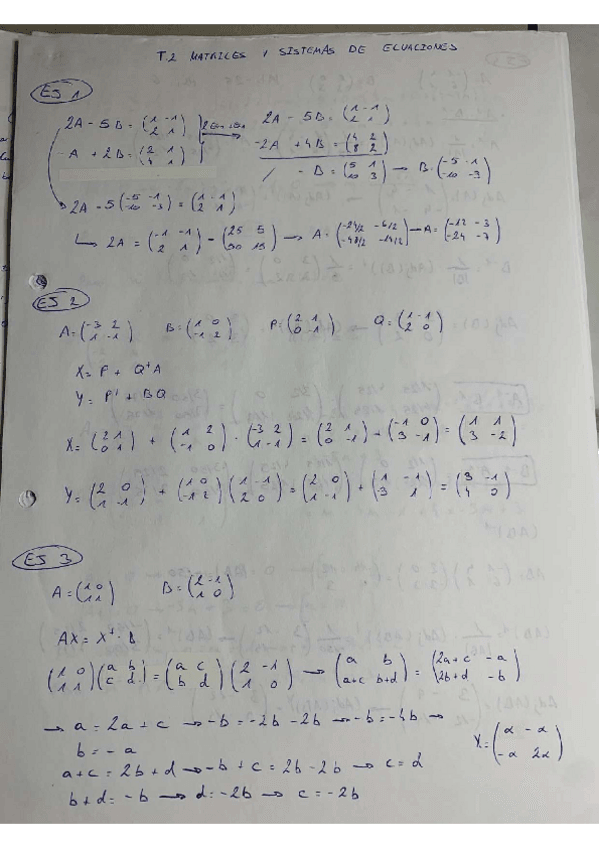 T.2 MATRICES Y SISTEMAS DE ECUACIONES
EJ 1
2A - 5B = (1 -1 / 2 1)
-A + 2B = (2 1 / 4 1)
2A - 5B = (1 -1 / 2 1)
-2A + 4B = (4 2 / 8 2)
/ - B = (5 1 / 10 3) → B = (-5 -1 / -10 -3)
2A - 5 (-5 -1 / -10 -3) = (1 -1 / 2 1)
↳ 2A = (-1 -1 / 2 1) - (25 5 / 50 15) → A = (-24/2 -6/2 / -48/2 -14/2) → A = (-12 -3 / -24 -7)
EJ 2
A = (-3 2 / 1 -1) B = (1 0 / -1 2) P = (2 1 / 0 -1) Q = (1 -1 / 2 0)
X = P + QᵗA
Y = Pᵗ + BQ
X = (2 1 / 0 1) + (1 2 / -1 0) · (-3 2 / 1 -1) = (2 1 / 0 -1) + (-1 0 / 3 -1) = (1 1 / 3 -2)
Y = (2 0 / 1 -1) + (1 0 / -1 2) (1 -1 / 2 0) = (2 0 / 1 -1) + (1 -1 / 3 1) = (3 -1 / 4 0)
EJ 3
A = (1 0 / 1 1) B = (2 -1 / 1 0)
AX = Xᵗ · B
(1 0 / 1 1) (a b / c d) = (a c / b d) (2 -1 / 1 0) → (a b / a+c b+d) = (2a+c -a / 2b+d -b)
→ a = 2a + c → -b = -2b - 2b → -b = -4b →
b = - a
a + c = 2b + d → -b + c = 2b - 2b → c = d
b + d = - b → d = -2b → c = -2b
X = (α -α / -α 2α)